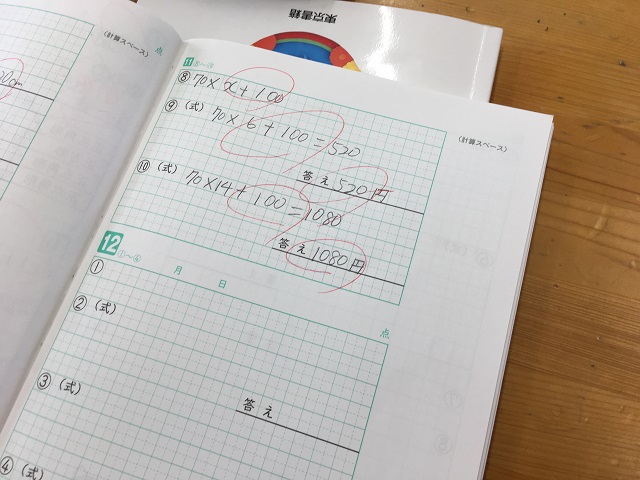 東京書籍
(計算スペース)
点
0cm
11 ⑧~⑩
⑧ 70×x+100
⑨ (式) 70×6+100=520
答え 520円
(計算スペース)
⑩ (式) 70×14+100=1080
答え 1080円
12 ①~④
① 月 日
点
② (式)
答え
③ (式)
④ (式)